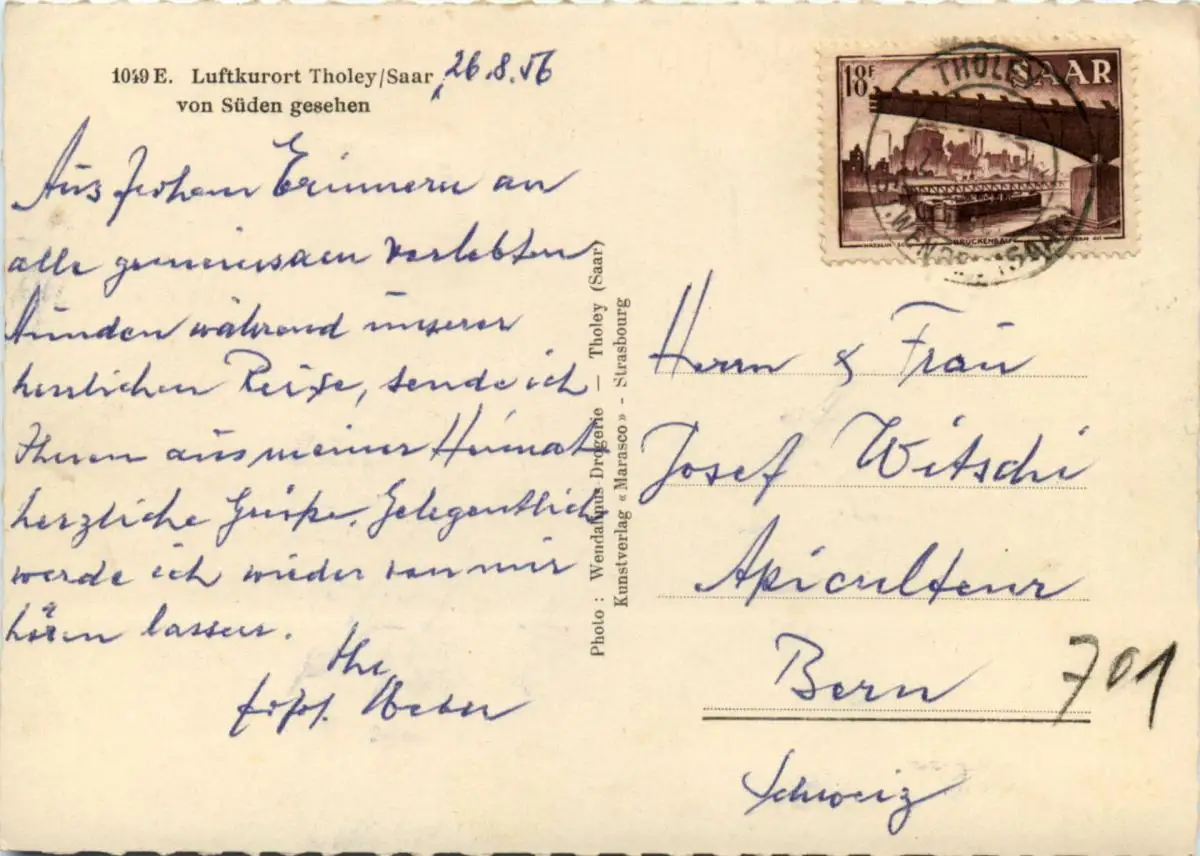 1049 E. Luftkurort Tholey/Saar, 26.8.56
von Süden gesehen
Aus frohem Erinnern an
alle gemeinsam verlebten
Stunden während unserer
herrlichen Reise, sende ich
Ihnen aus meiner Heimat
herzliche Grüße. Gelegentlich
werde ich wieder von mir
hören lassen.
Ihr
Weber
Photo : Wendalinus-Drogerie — Tholey (Saar)
Kunstverlag « Marasco » - Strasbourg
18F SAAR
BRÜCKENBAU
THOLEY
(SAAR)
Herrn & Frau
Josef Witschi
Apiculteur
Bern
701
Schweiz